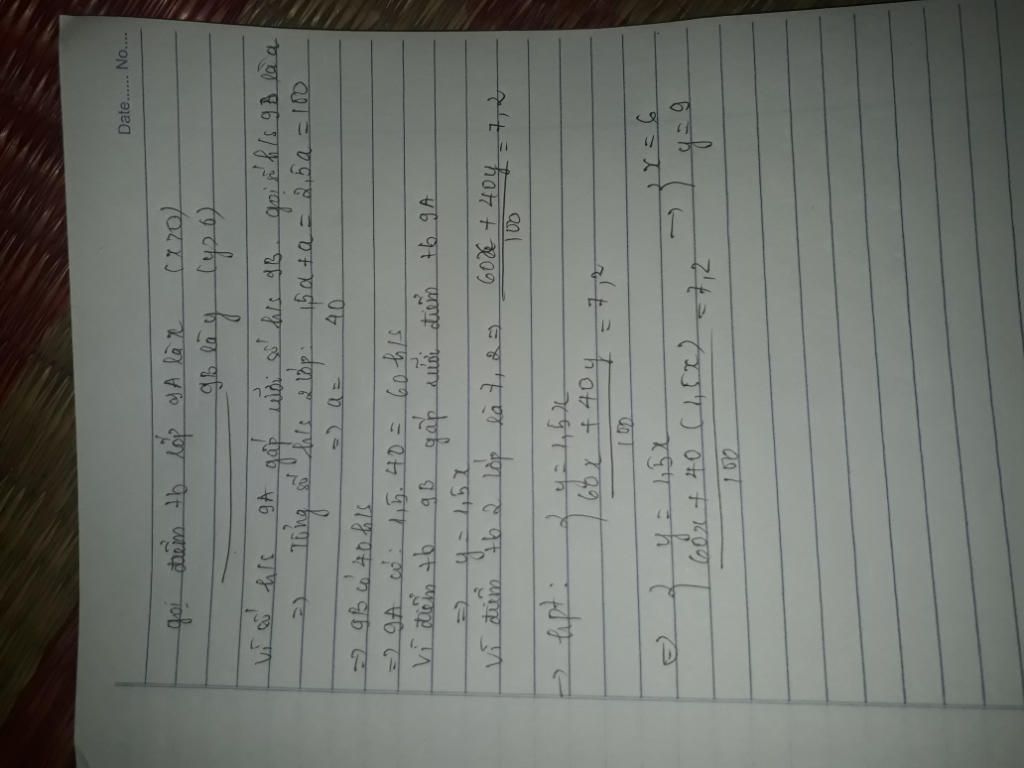 Date...... No....
gọi điểm tb lớp 9A là x (x>0)
9B là y (y>0)
Vì số h/s 9A gấp rưỡi số h/s 9B. gọi số h/s 9B là a
=> Tổng số h/s 2 lớp: 1,5a + a = 2,5a = 100
=> a = 40
=> 9B có 40 h/s
=> 9A có: 1,5.40 = 60 h/s
Vì điểm tb 9B gấp rưỡi điểm tb 9A
=> y = 1,5x
Vì điểm tb 2 lớp là 7,2 => 60x + 40y / 100 = 7,2
→ hpt: { y = 1,5x
60x + 40y / 100 = 7,2
<=> { y = 1,5x
60x + 40(1,5x) / 100 = 7,2 → } x = 6
y = 9